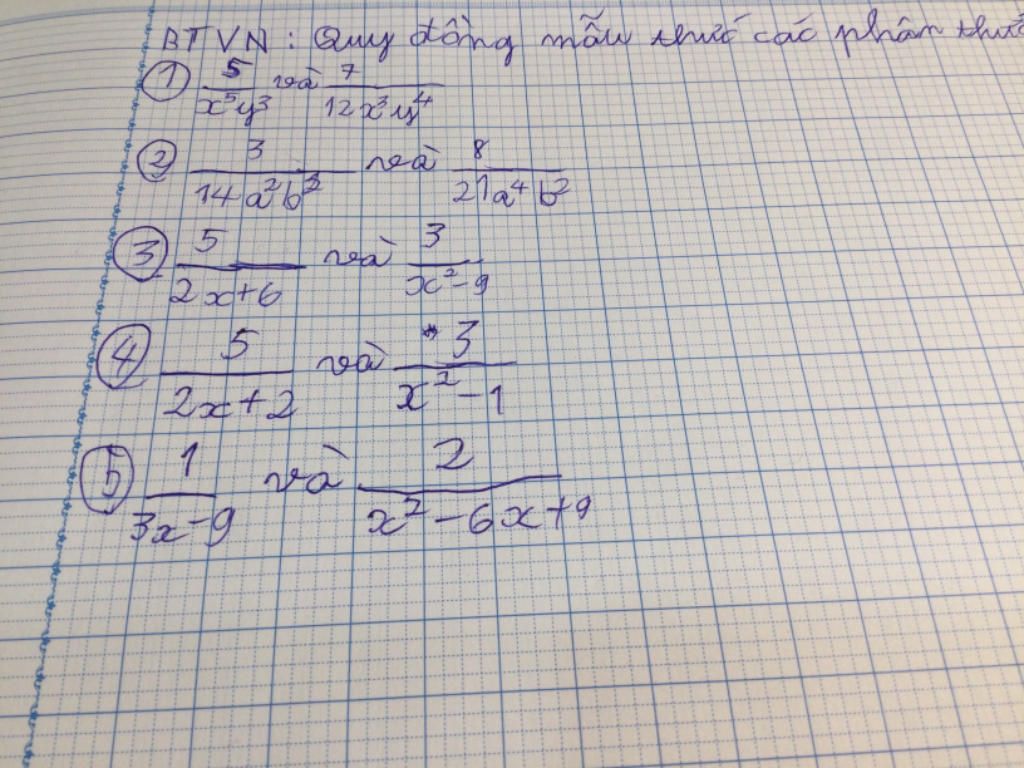 BTVN: Quy đồng mẫu thức các phân thức
① 5/x⁵y³ và 7/12x³y⁴
② 3/14a²b² và 8/21a⁴b²
③ 5/2x+6 và 3/x²-9
④ 5/2x+2 và 3/x²-1
⑤ 1/3x-9 và 2/x²-6x+9